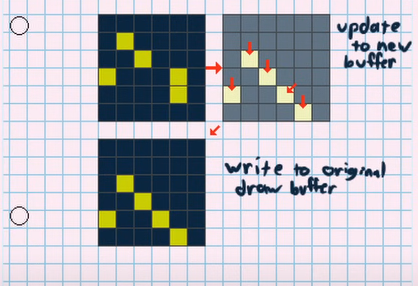 update
to new
buffer
write to original
draw buffer